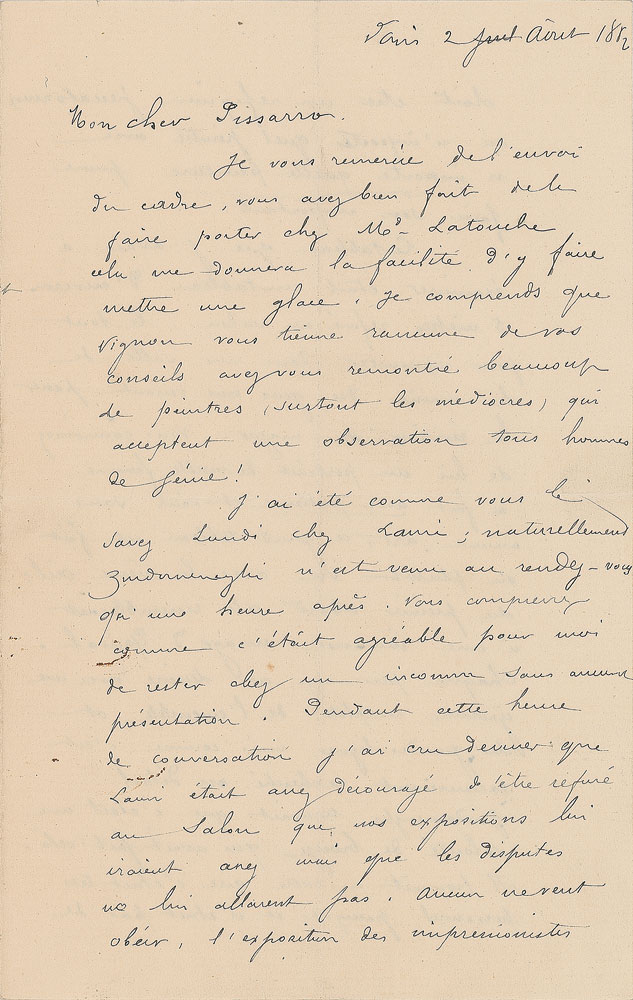 Paris 2 Août 188
Mon cher Pissarro.
Je vous remercie de l'envoi
du cadre, vous avez bien fait de le
faire porter chez Md. Latouche
cela me donnera la facilité d'y faire
mettre une glace. Je comprends que
Vignon vous tienne rancune de vos
conseils avez vous remontré beaucoup
de peintres (surtout les médiocres) qui
acceptent une observation tous hommes
de Génie!
J'ai été comme vous le
savez Lundi chez Lami; naturellement
Zandomeneghi n'est venu au rendez-vous
qu'une heure après. Vous comprenez
comme c'était agréable pour moi
de rester chez un inconnu sans aucune
présentation. Pendant cette heure
de conversation j'ai cru deviner que
Lami était assez découragé d'être refusé
au Salon que nos expositions lui
iraient assez mais que les disputes
ne lui allaient pas. Aucun ne veut
obéir, l'exposition des impressionistes